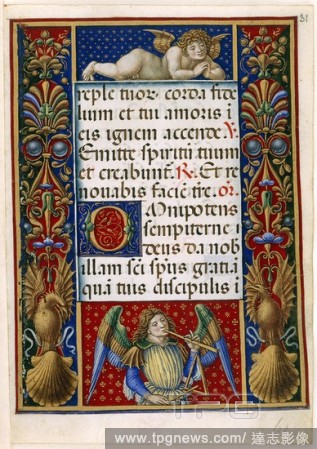 31
reple tuor. corda fide
lium et tui amoris i
eis ignem accende. V.
Emitte spiritũ tuum
et creabunt̃. R. Et re
novabis faciẽ tr̃e. or.
Omnipotens
sempiterne
deus da nob
illam sc̃i sp̃us gratiã
quã tuis discipulis i
TPG
www.tpgnews.com/ 達志影像